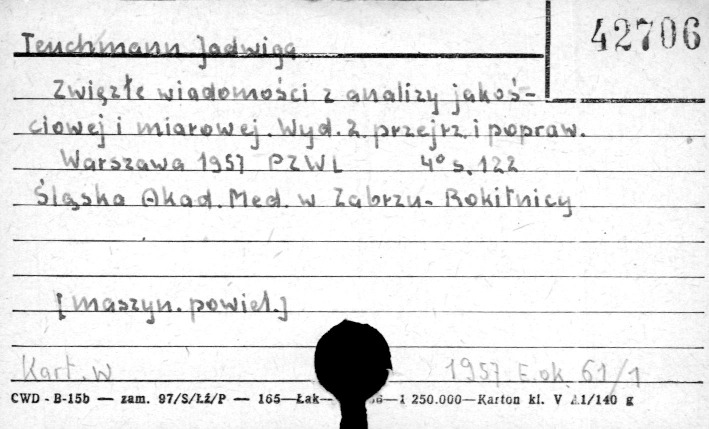 42706
Teuchmann Jadwiga
Zwięzłe wiadomości z analizy jakoś-
ciowej i miarowej. Wyd. 2. przejrz. i popraw.
Warszawa 1957 PZWL 4° s. 122
Śląska Akad. Med. w Zabrzu-Rokitnicy
[maszyn. powiel.]
Kart. W 1957 E. ok. 61/1
CWD - B-15b — zam. 97/S/Łź/P — 165—Łak— 6—1 250.000—Karton kl. V A1/140 g